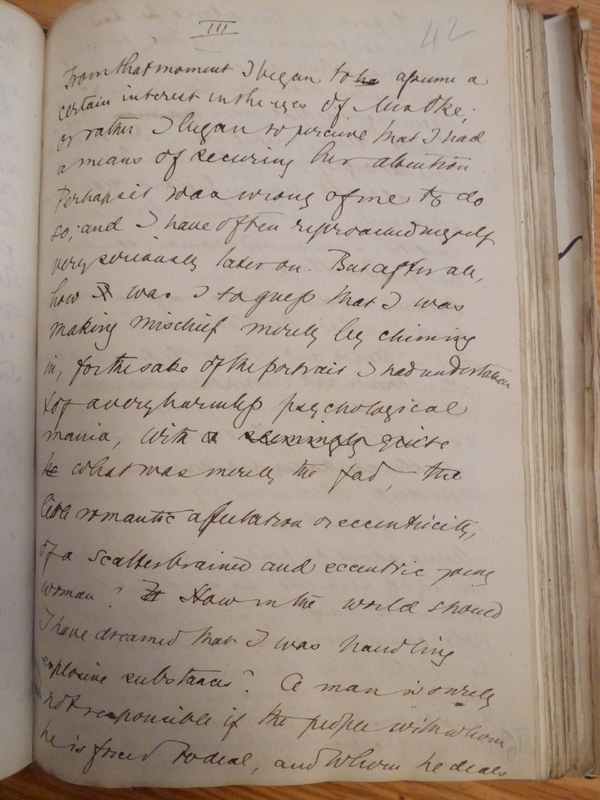 III
42
From that moment I began to ha assume a
certain interest in the eyes of Mrs Oke;
or rather I began to perceive that I had
a means of securing her attention
Perhaps it was wrong of me to do
so; and I have often reproached myself
very seriously later on. But after all,
how I was I to guess that I was
making mischief merely by chiming
in, for the sake of the portrait I had undertaken
& of a very harmless psychological
mania, with a seemingly quite
what was merely the fad, the
little romantic affectation or eccentricity,
of a scatterbrained and eccentric young
woman? How in the world should
I have dreamed that I was handling
explosive substances? A man is surely
not responsible if the people with whom
he is forced to deal, and whom he deals